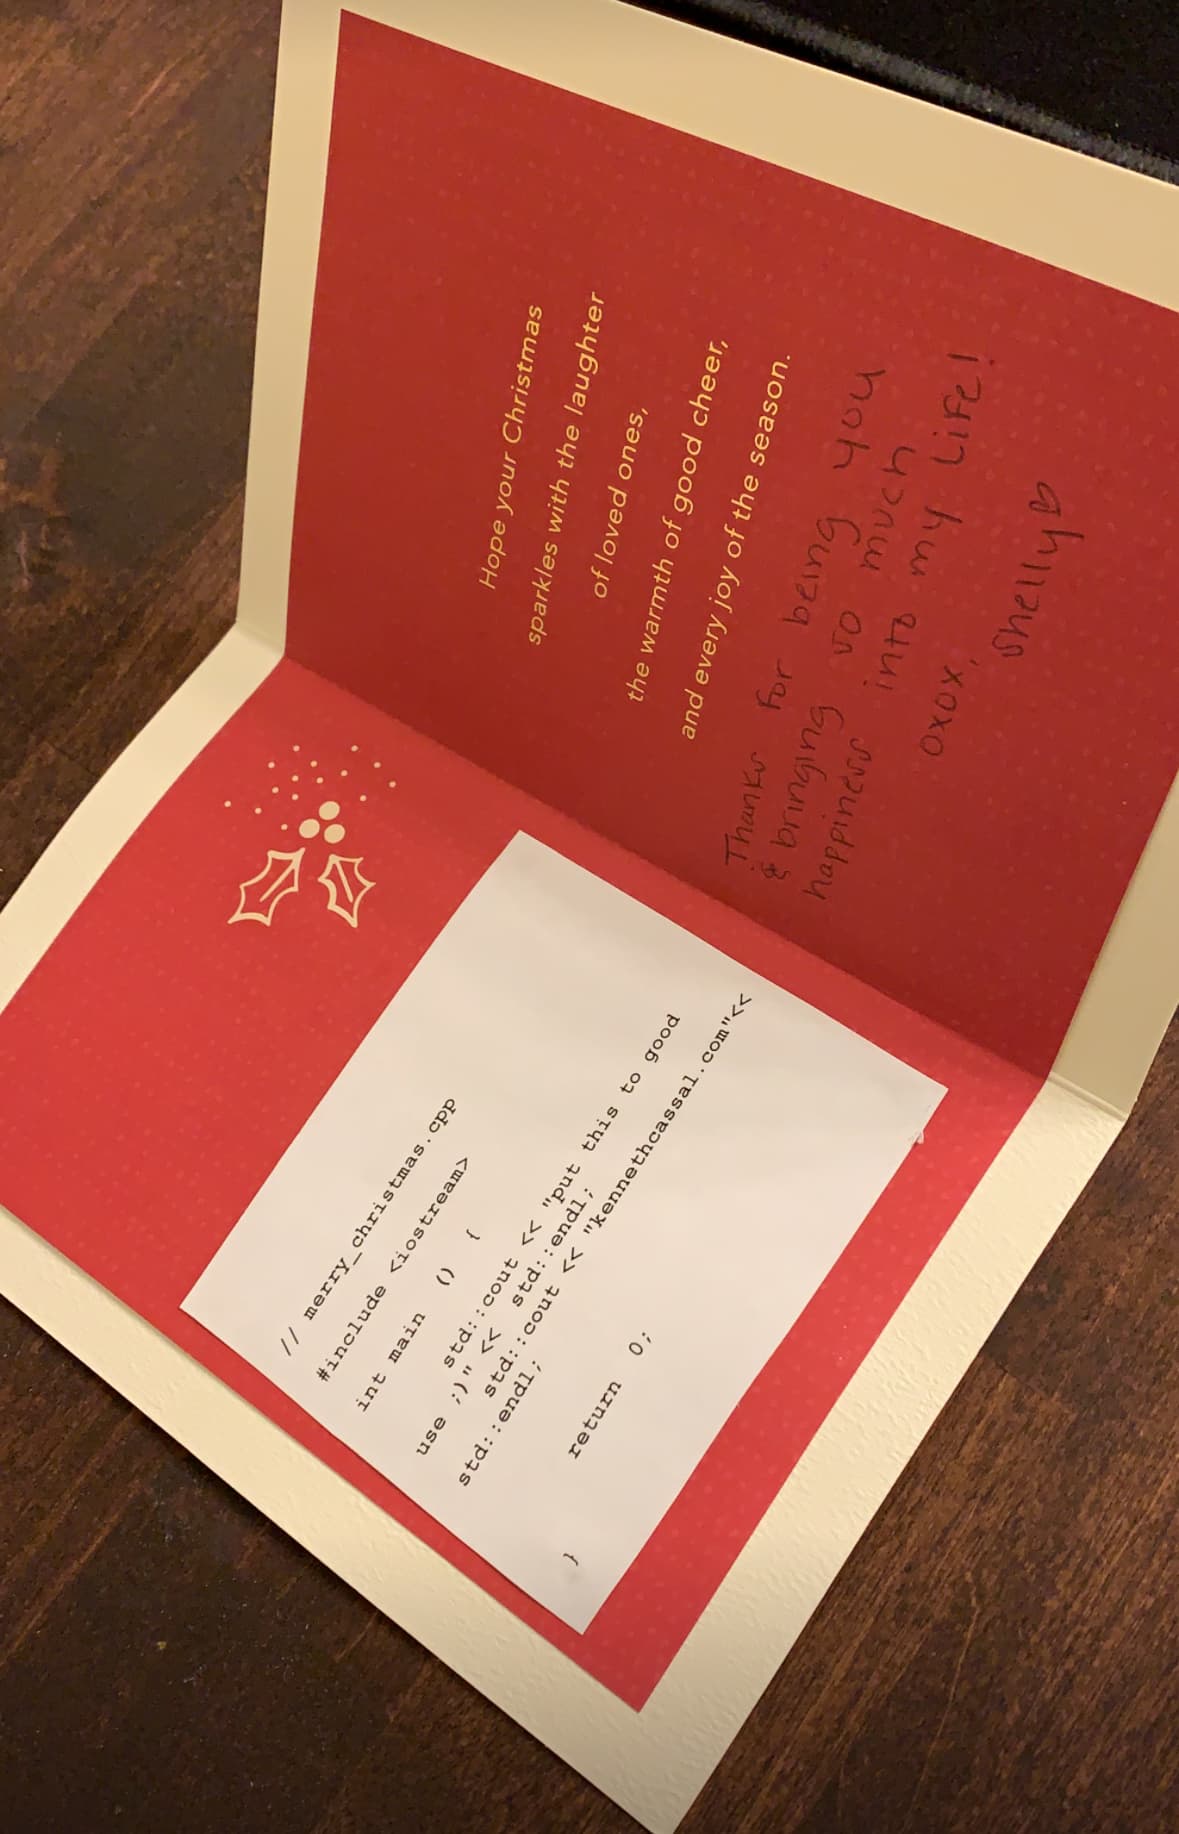 Hope your Christmas
sparkles with the laughter
of loved ones,
the warmth of good cheer,
and every joy of the season.
Thanks for being you
& bringing so much
happiness into my life!
oxox,
Shelly
// merry_christmas.cpp
#include <iostream>
int main () {
std::cout << "put this to good
use ;)" << std::endl;
std::cout << "kennethcassal.com"<<
std::endl;
return 0;
}